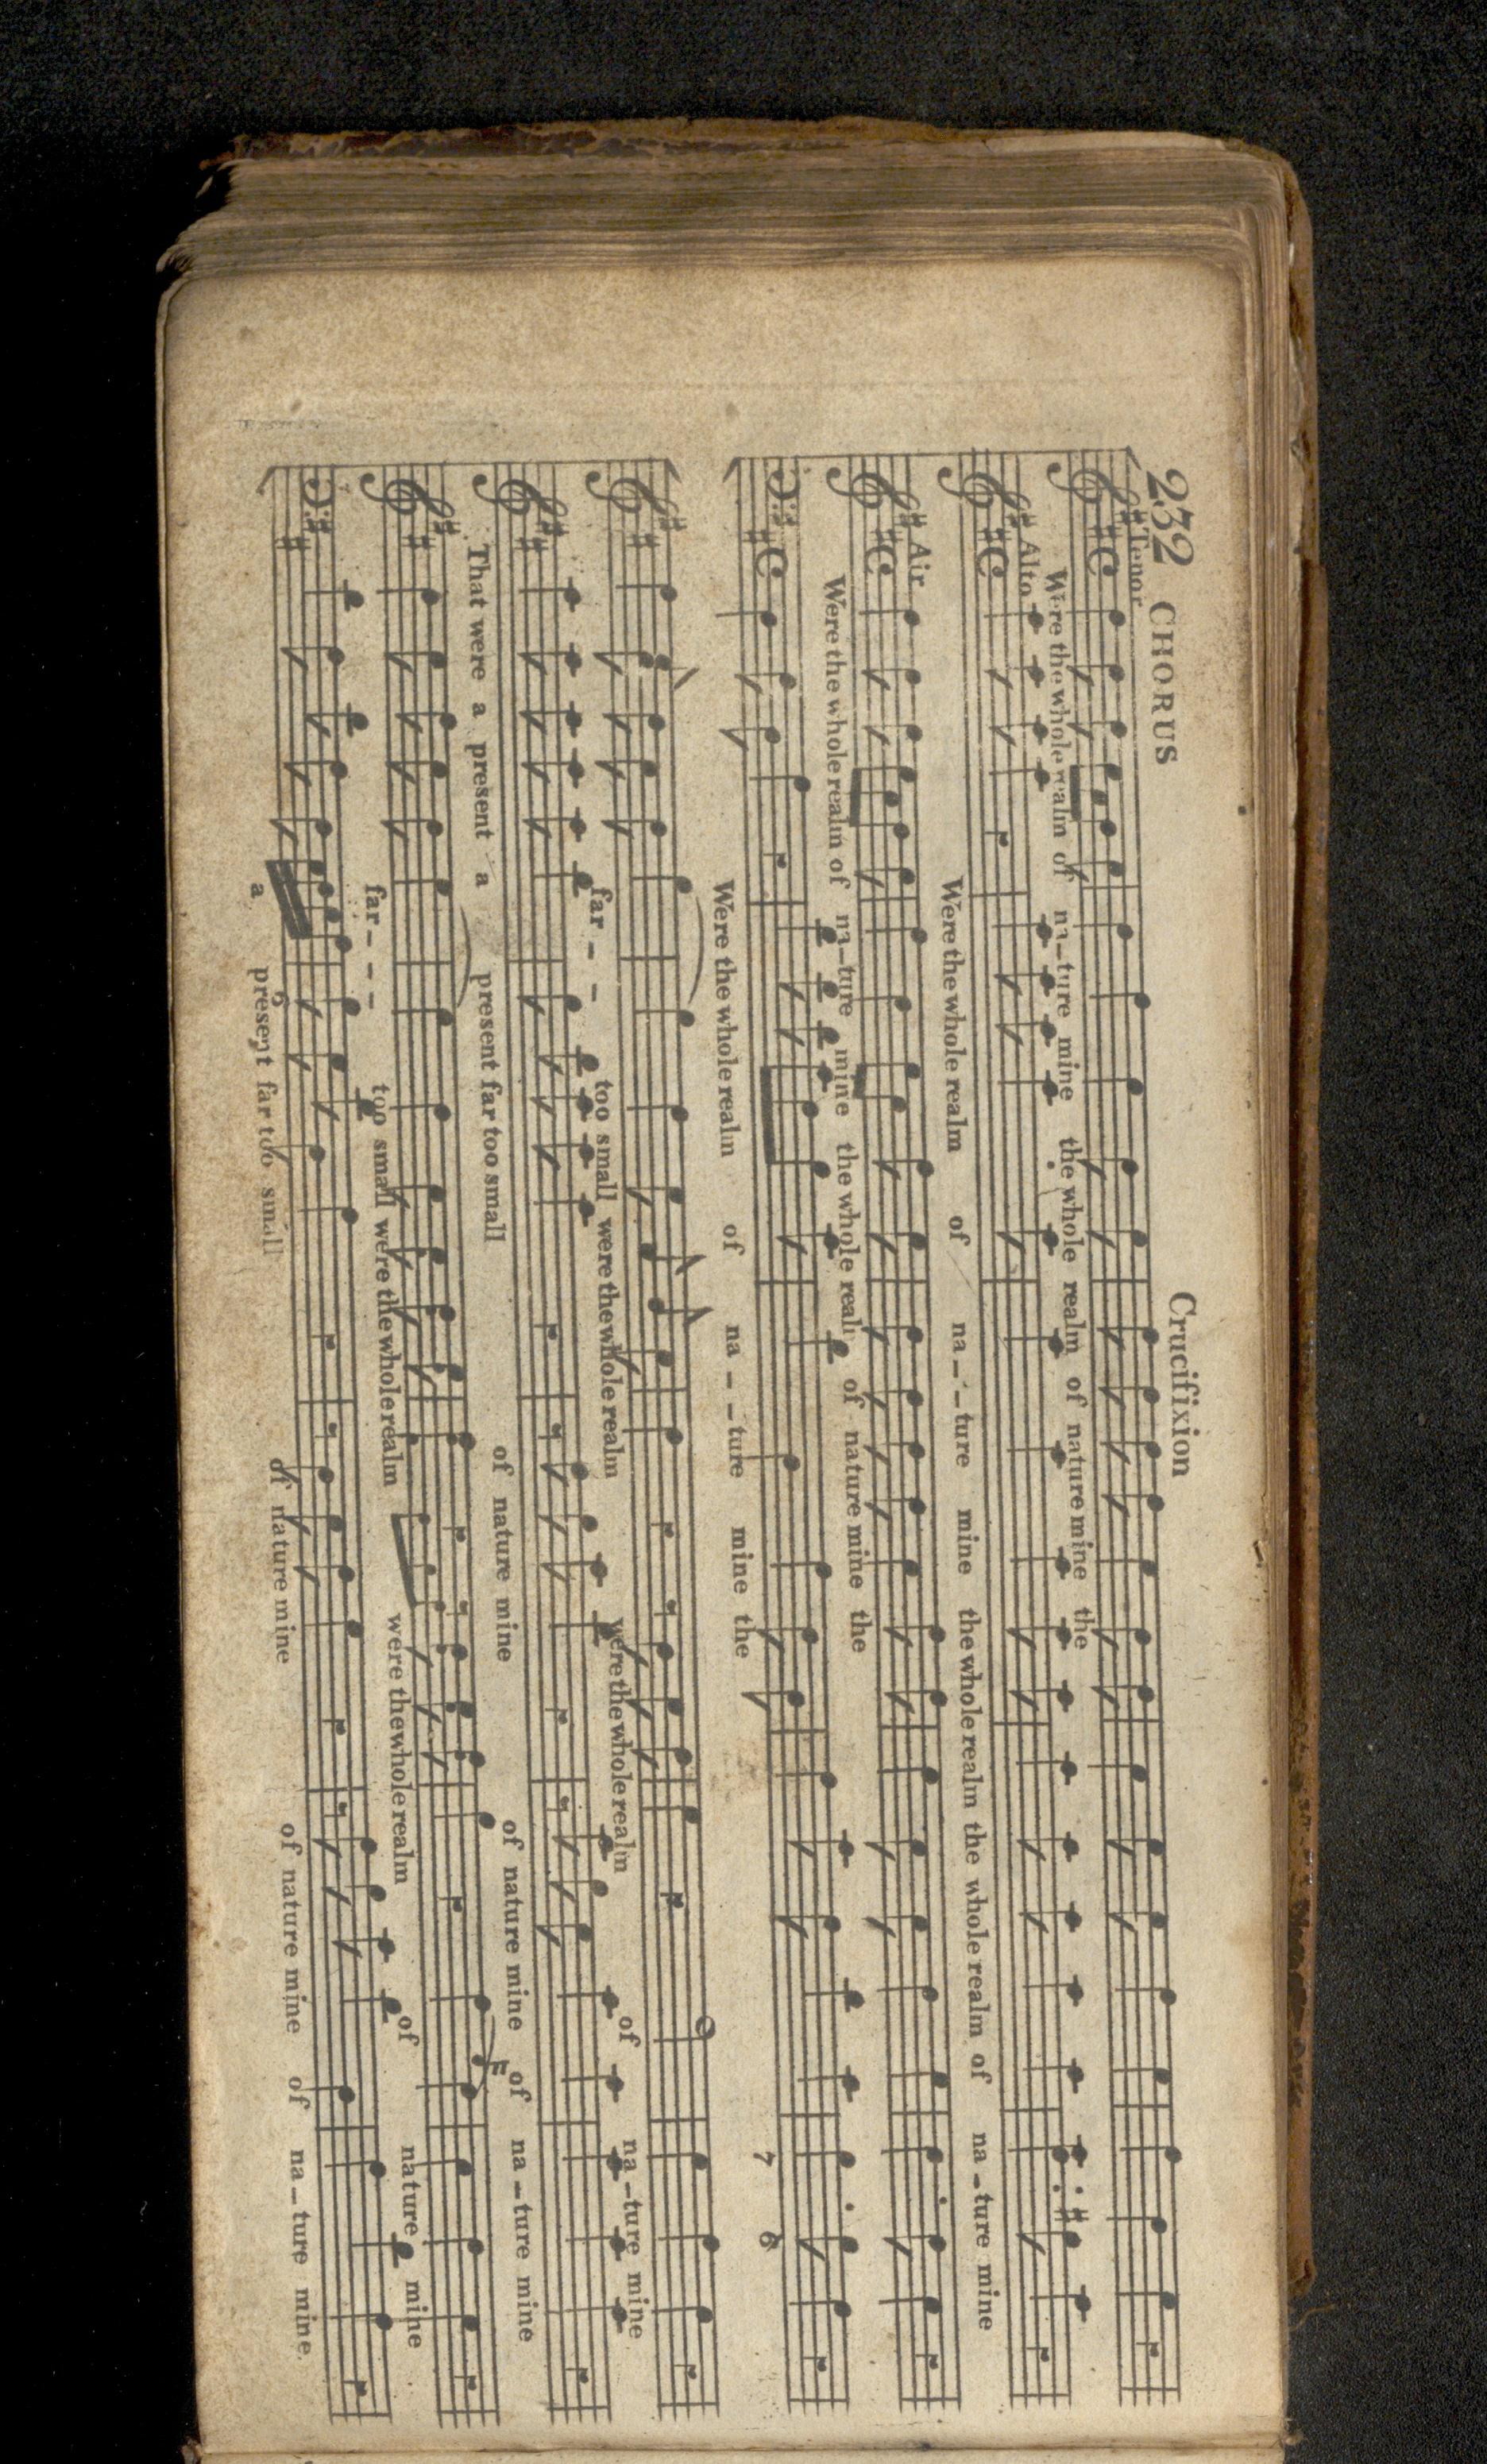 232 CHORUS Crucifixion
Tenor
Were the whole realm of na_ture mine the whole realm of nature mine the
Alto
Were the whole realm of na_-_ture mine the whole realm the whole realm of na_ture mine
Air
Were the whole realm of na_ture mine the whole realm of nature mine the
Were the whole realm of na_ _ture mine the
7 6
far_ _ _ too small were the whole realm were the whole realm of na_ture mine
That were a present a present far too small of nature mine of nature mine of na_ture mine
far_ _ _ too small were the whole realm were the whole realm of nature mine
6
a present far too small of nature mine of nature mine of na_ture mine